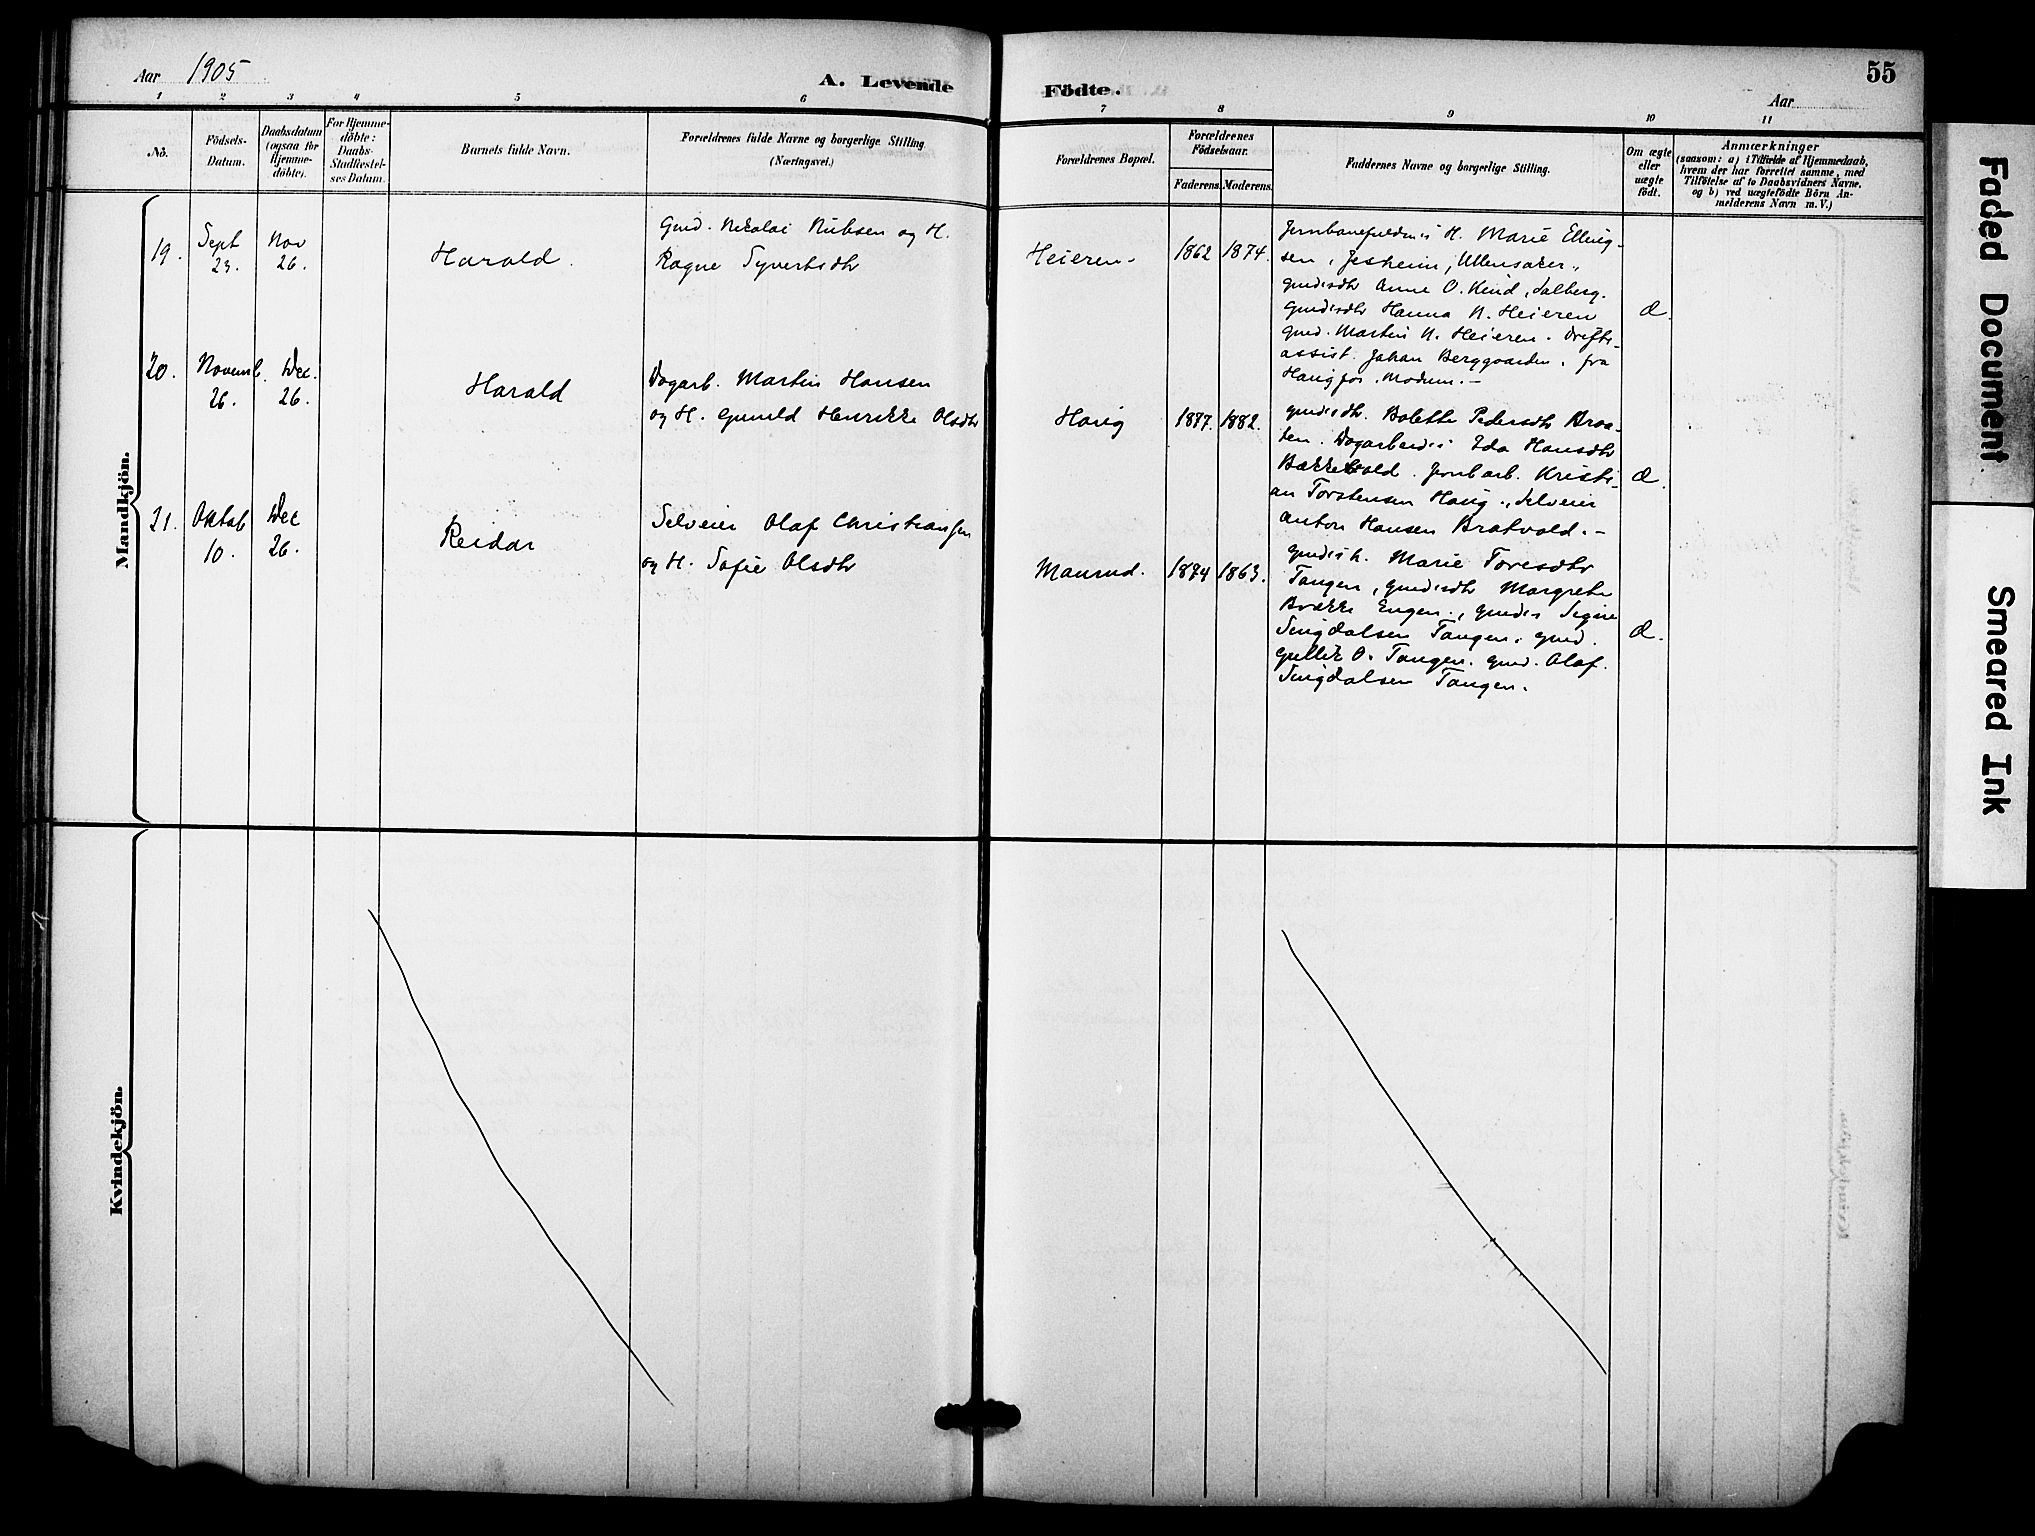 Aar 1905
A. Levende
Födte.
55
Aar
1 2 3 4 5 6 7 8 9 10 11
No.
Födsels-
Datum.
Daabsdatum
(ogsaa for
Hjemme-
döbte).
For Hjemme-
döbte:
Daabs-
Stadfæstel-
ses Datum.
Barnets fulde Navn.
Forældrenes fulde Navne og borgerlige Stilling.
(Næringsvei.)
Forældrenes Bopæl.
Forældrenes
Födselsaar.
Faderens. Moderens.
Faddernes Navne og borgerlige Stilling.
Om ægte
eller
uægte
födt.
Anmærkninger
(saasom: a) i Tilfælde af Hjemmedaab,
hvem der har forrettet samme, med
Tilföielse af to Daabsvidners Navne,
og b) ved uægtefödte Börn An-
melderens Navn m. V.)
Mandkjön.
19.
Sept
23.
Nov
26.
Harald.
Gmd. Nikolai Nubsen og H.
Ragne Syvertsdtr
Heieren
1862 1874.
H. Marie Elling-
sen, Jesheim, Ullensaker.,
Anne O. Kind, Salberg.
Hanna N. Heieren
gmd. Martin N. Heieren. Drifts-
assist. Johan Berggaarden. fra
Haugfos. Modum.-
Æ.
20.
Novemb.
26.
Dec.
26.
Harald
Dagarb. Martin Hansen
og H. Gunild Henrikke Olsdtr
Haug
1877. 1882.
Bolette Pedersdtr Braa-
ten. Ida Hansdtr
Bækkevold. Jernbarb. Kristi-
an Torstensen Haug., Selveier
Anton Hansen Bratvold.-
Æ.
21.
Oktob
10.
Dec
26.
Reidar
Selveier Olaf Christiansen
og H. Sofie Olsdtr
Maurud.
1874 1863.
Marie Toresdtr
Tangen, Margrete
Brække Engen., Signe
Singdalsen Tangen. gmd.
Gullik O. Tangen. gmd. Olaf
Singdalsen Tangen.
Æ.
Kvindekjön.
Faded Document
Smeared Ink